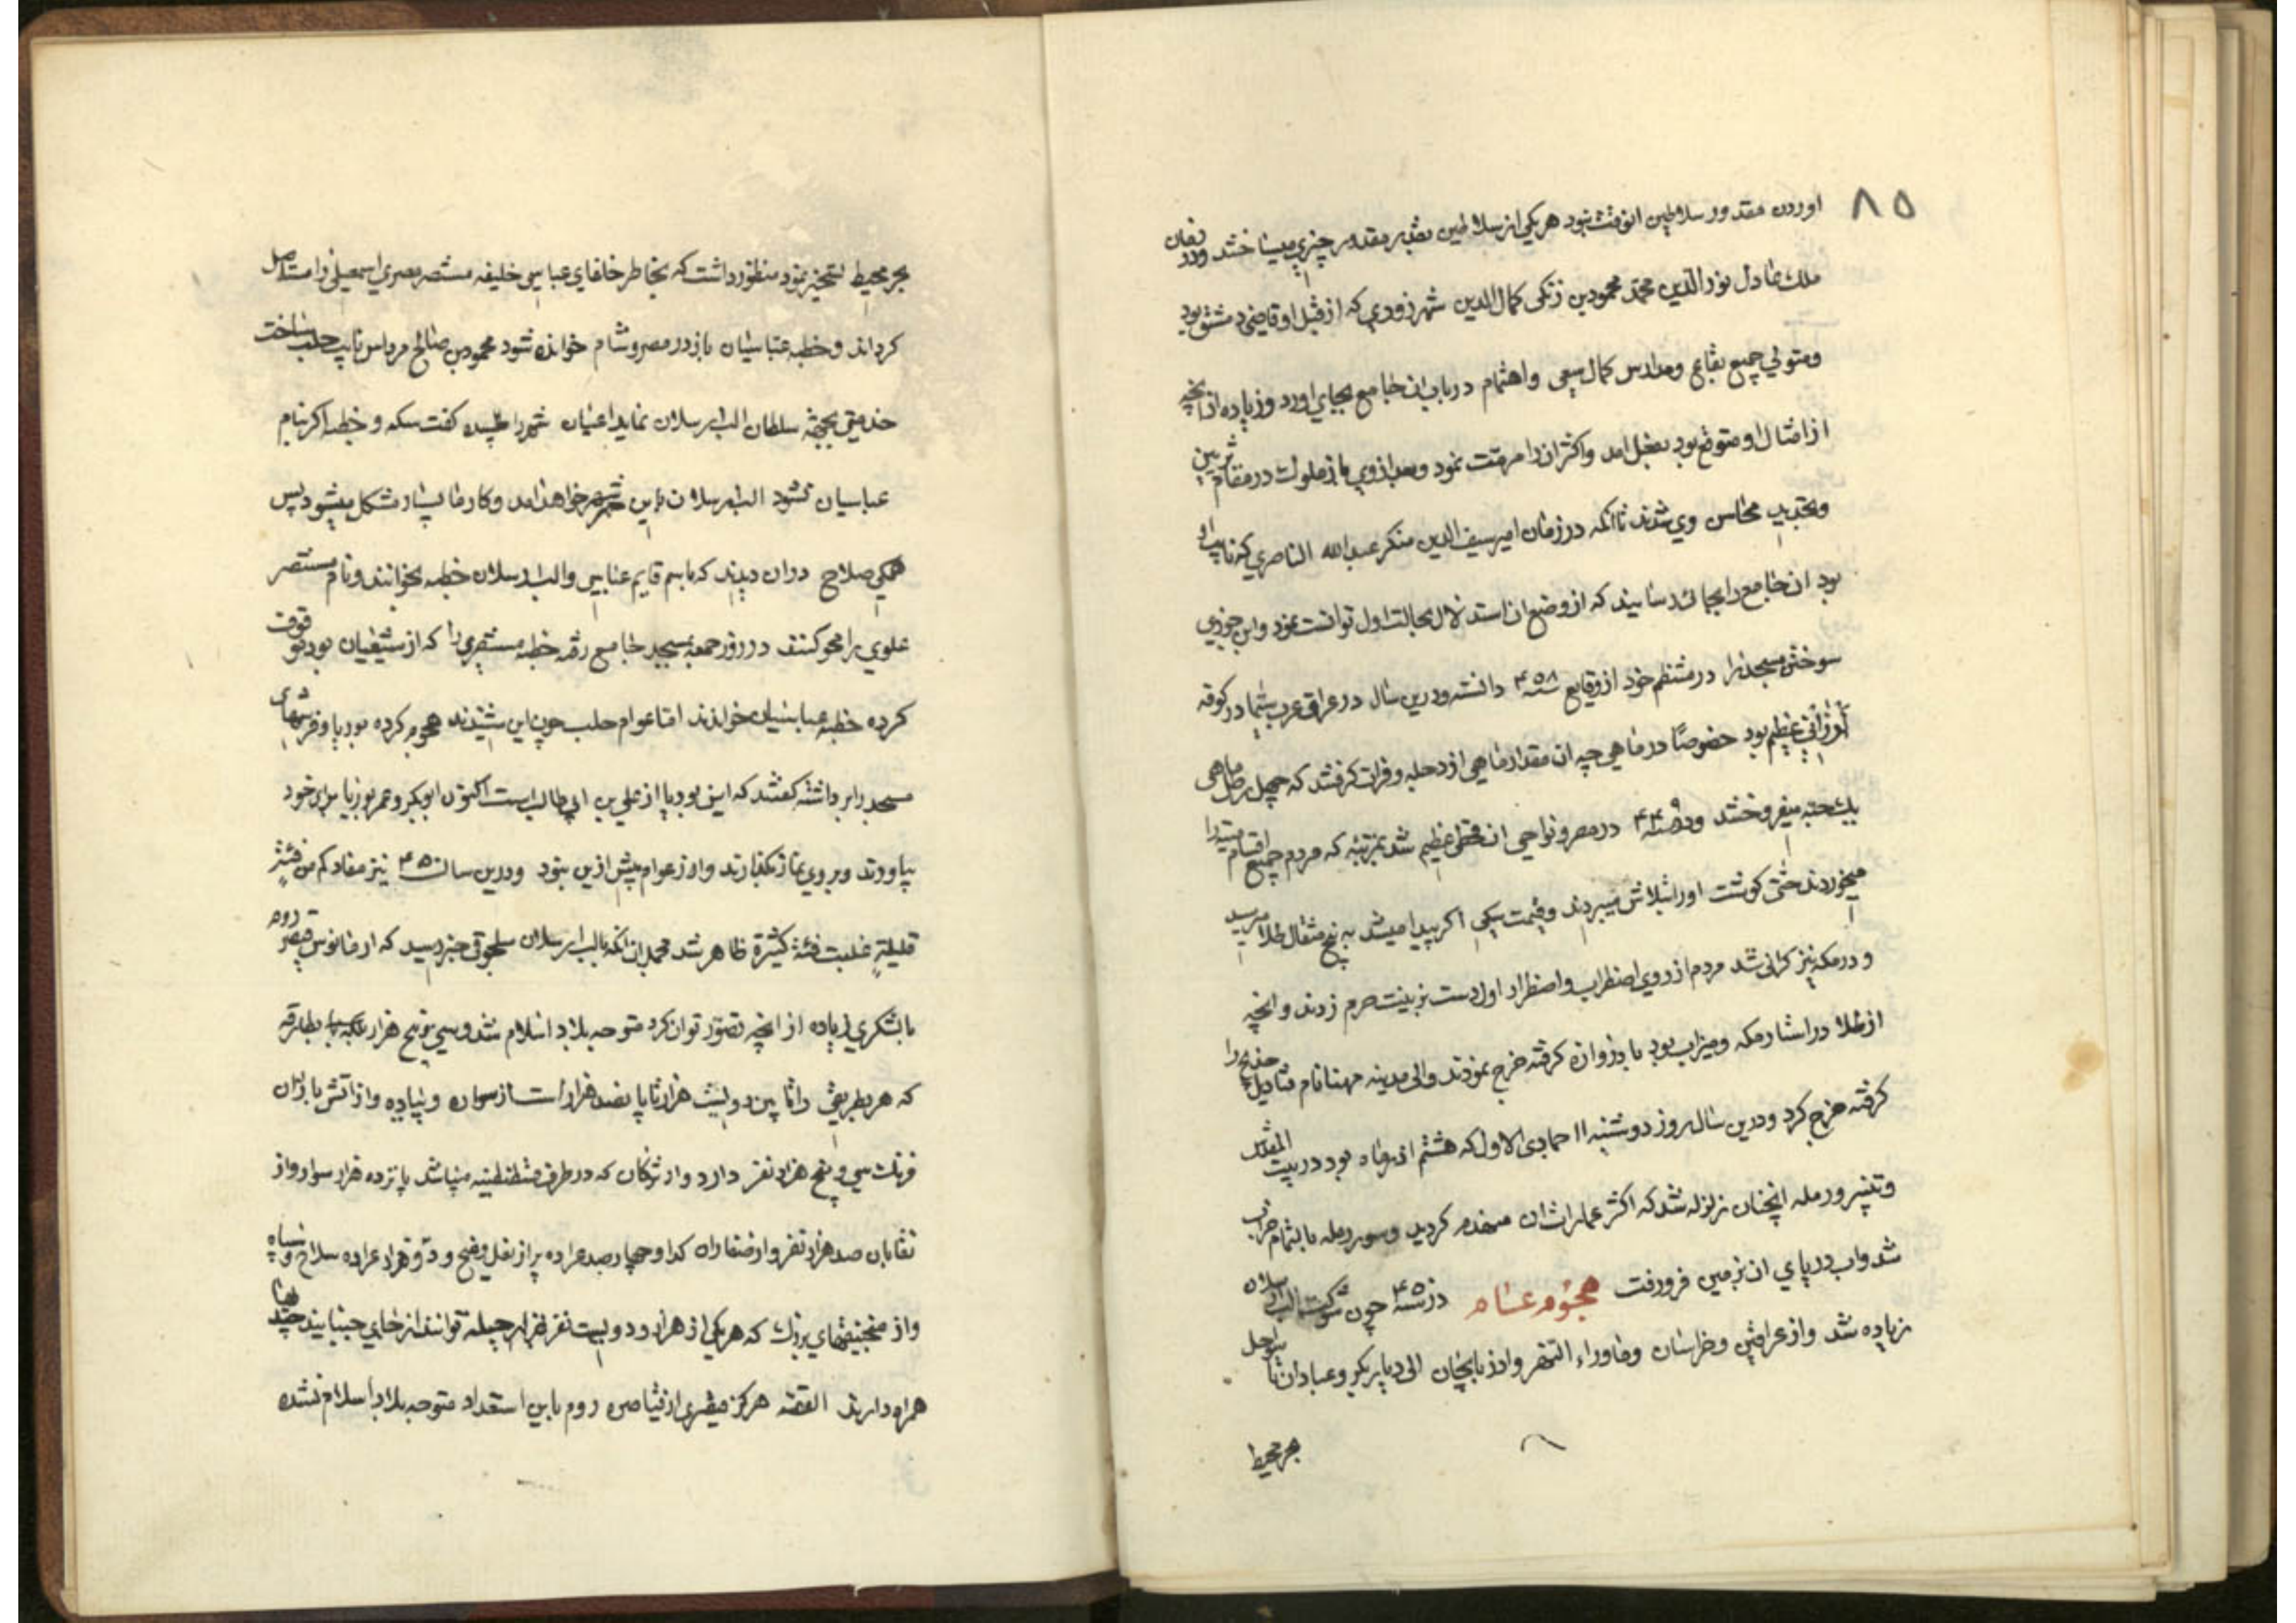 ۸۵
اوردن مقدور سلاطین انوقت نبود هریکی از سلاطین بقدر مقدور چیزی میساختند ودر زمان
ملک عادل نورالدین محمد محمودبن زنکی کمال‌الدین شهرزوری که از قبل او قاضی دمشق بود
ومتولی جمیع بقاع ومدارس کمال سعی واهتمام درباب ان جامع بجای اورد وزیاده از انچه
از امثال او متوقع بود بفعل امد واکثر ان را مرمت نمود وبعد از وی باز ملوک در مقام تزیین
وتجدید محاسن وی شدند تا انکه در زمان امیر سیف الدین منکر عبدالله الناصری که نایب او
بود ان جامع را بجائی رسانیدند که از وضع ان استدلال بحالت اول توانست نمود وابن جوزی
سوختن مسجد را در منتظم خود از وقایع سنه ۴۵۸ دانسته ودرین سال در عراق عرب سیما در کوفه
ارزانی عظیم بود خصوصًا در ماهی چه ان مقدار ماهی از دجله وفرات کرفتند که چهل رطل ماهی
بیک حبه میفروختند ودر سنه ۴۴۹ در مصر ونواحی ان قحطی عظیم شد بمرتبه که مردم جمیع اقسام میته را
میخوردند حتی کوشت اورا بتلاش میبردند وقیمت سکی اکر پیدا میشد به پنج مثقال طلا میرسید
ودر مکه نیز کرانی شد مردم از روی اضطراب واضطرار اول دست بزینت حرم زدند وانچه
از طلا در استار مکه ومیزاب بود با دروازه کرفته خرج نمودند والی مدینه مهنا نام قنادیل ضریح را
کرفته خرج کرد ودرین سال روز دوشنبه ۱۱ جمادی الاول که هشتم اذرماه بود در بیت المقدس
وتنیس ورمله انچنان زلزله شد که اکثر عمارات ان منهدم کردید وسور رمله بالتمام خراب
شد واب دریای ان بزمین فرورفت هجوم عام در سنه ۴۵۰ چون شوکت الب ارسلان
زیاده شد واز عراقین وخراسان وماوراء النهر واذربایجان الی دیاربکر وعبادان تا سواحل
بحر محیط
بحر محیط تسخیر نمود منظور داشت که بخاطر خلفای عباسی خلیفه مستنصر مصری اسمعیلی را مستاصل
کرداند وخطبه عباسیان باز در مصر وشام خوانده شود محمودبن صالح مرداس نایب حلب ساخت
خدمتی بجهة سلطان الب ارسلان نماید اعیان شهر را طلبیده کفت سکه وخطبه اکر بنام
عباسیان نشود الب ارسلان باین شهر خواهد امد وکار ما بسیار مشکل میشود پس
همکی صلاح دران دیدند که باسم قایم عباسی والب ارسلان خطبه بخوانند ونام مستنصر
علوی را محو کنند در روز جمعه بمسجد جامع رفته خطبه مستنصری را که از شیعیان بود موقوف
کرده خطبه عباسیان خواندند اما عوام حلب چون این شنیدند هجوم کرده بوریا وفرشهای
مسجد را برداشته کفتند که این بوریا از علی بن ابی طالب است اکنون ابوبکر وعمر بوریا برای خود
بیاورند وبروی نماز بکذارند وازار عوام بیش ازین نبود ودرین سال ۴۵۰ نیز مفاد کم من فئة
قلیلة غلبت فئة کثیرة ظاهر شد محمل انکه بالب ارسلان سلجوقی خبر رسید که ارمانوس قیصر روم
با لشکری زیاده از انچه تصور توان کرد متوجه بلاد اسلام شد وسی وپنج هزار بطارقه
که هر بطریقی را مابین دویست هزار تا پانصد هزار است از سواره وپیاده واز اتش بازان
فرنک سی وپنج هزار نفر دارد واز ترکان که در طرف قسطنطنیه میباشند پانزده هزار سوار واز
نقابان صد هزار نفر واز صفاران کذا وچهارصد عراده پر از نعل ومیخ ودو هزار عراده سلاح وسپاه
واز منجنیقهای بزرک که هریکی از هزار ودویست نفر بهزار حیله توانند از جای جنبانید چند
همراه دارند القصه هرکز قیصری از قیاصره روم باین استعداد متوجه بلاد اسلام نشده